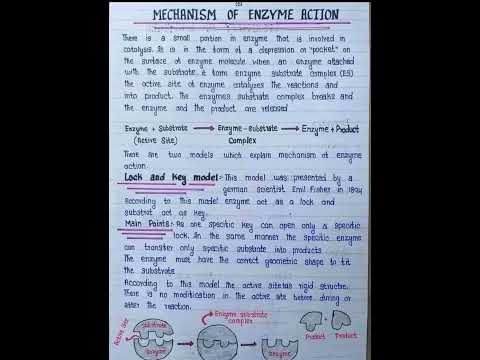 MECHANISM OF ENZYME ACTION
There is a small portion in enzyme that is involved in
catalysis. It is in the form of a depression or "pocket" on
the surface of enzyme molecule. when an enzyme attached
with the substrate, it form enzyme substrate complex (ES)
the active site of enzyme catalyzes the reactions and
into product. The enzymes substrate complex breaks and
the enzyme and the product are released
Enzyme + Substrate → Enzyme-substrate → Enzyme + Product
(Active Site) Complex
There are two models which explain mechanism of enzyme
action.
Lock and Key model:- This model was presented by a
german scientist Emil Fisher in 1894
according to this model enzyme act as a lock and
substrat act as key.
Main Points:- As one specific key can open only a specific
lock. In the same manner the specific enzyme
can transfer only specific substrate into products
The enzyme must have the correct geometric shape to fit
the substrate
According to this model the active site is rigid structre.
There is no modification in the active site before, during or
after the reaction.
Active site
substrate
enzyme
Enzyme substrate
complex
enzyme
Product Product